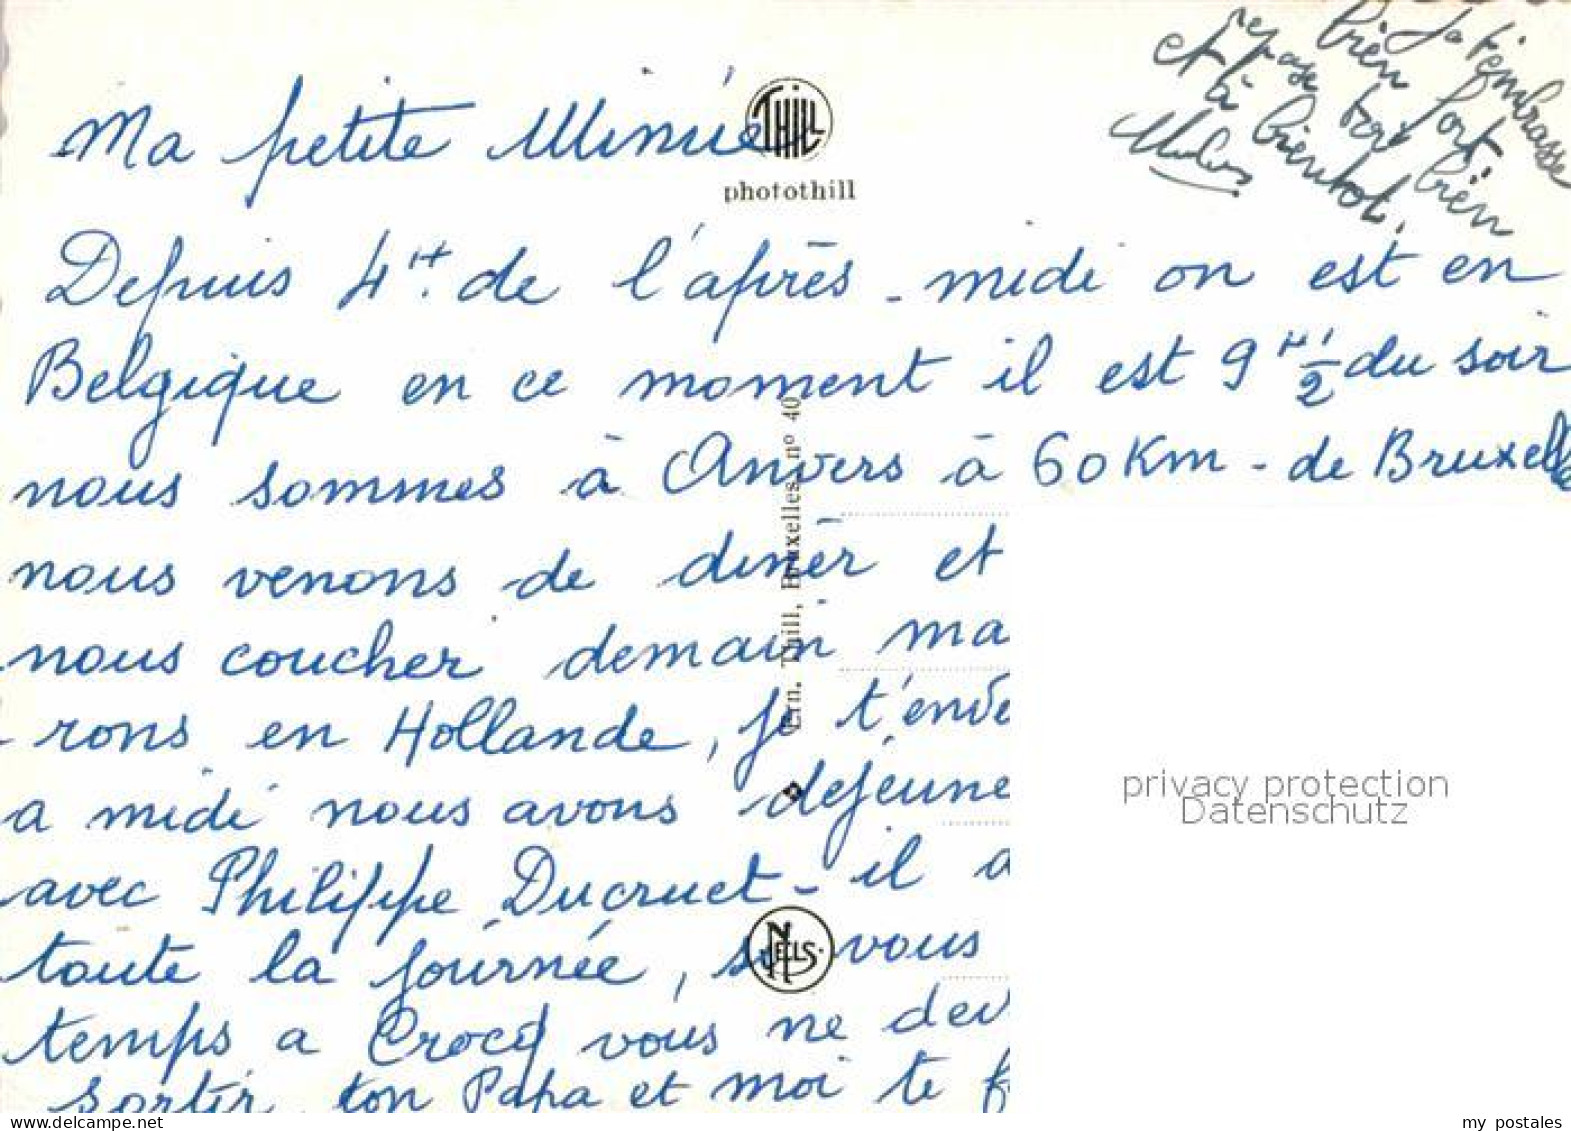 Ma petite Minie
THILL
photothill
Depuis 4H. de l'après - midi on est en
Belgique en ce moment il est 9H 1/2 du soir
nous sommes à Anvers à 60 Km - de Bruxelles
nous venons de diner et
nous coucher demain ma
rons en Hollande, je t'enve
a midi nous avons dejeune
avec Philippe Ducruet - il a
toute la journée, si vous
temps a Crocq vous ne dev
sortir ton Papa et moi te f
Je t'embrasse
bien fort
repose toi bien
et à bientot.
Ern. Thill, Bruxelles nº 40
NELS
privacy protection
Datenschutz
www.delcampe.net
my_postales